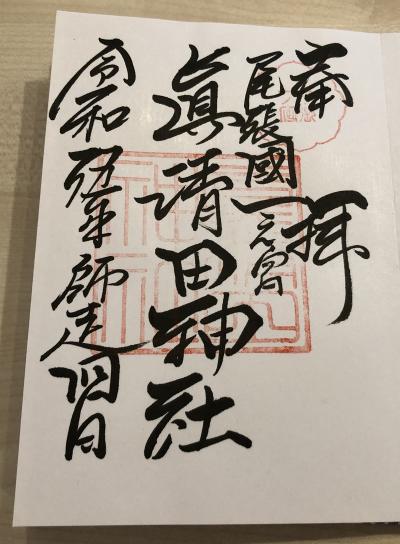 奉拝
尾張國一之宮
真清田神社
令和元年師走四日